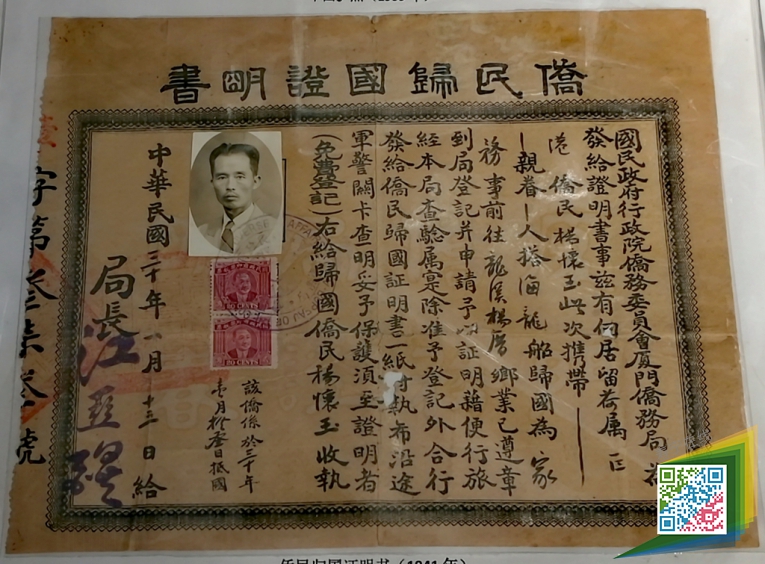 僑民歸國證明書
國民政府行政院僑務委員會厦門僑務局 為
發給證明書事茲有向居留荷属 巨
港 僑民楊懷玉此次携帶
親眷一人搭海龍船歸國為家
務事前往龍溪楊厝鄉業已遵章
到局登記并申請予以証明藉便行旅
經本局查驗属寔除准予登記外合行
發給僑民歸國証明書一紙付執希沿途
軍警關卡查明妥予保護須至證明者
(免費登記)右給歸國僑民楊懷玉收執
該僑係於三十年
壹月拾叁日抵國
局長 江亞醒
中華民國三十年一月十三日給
字第叁柒叁號
侨民归国证明书(1941年)